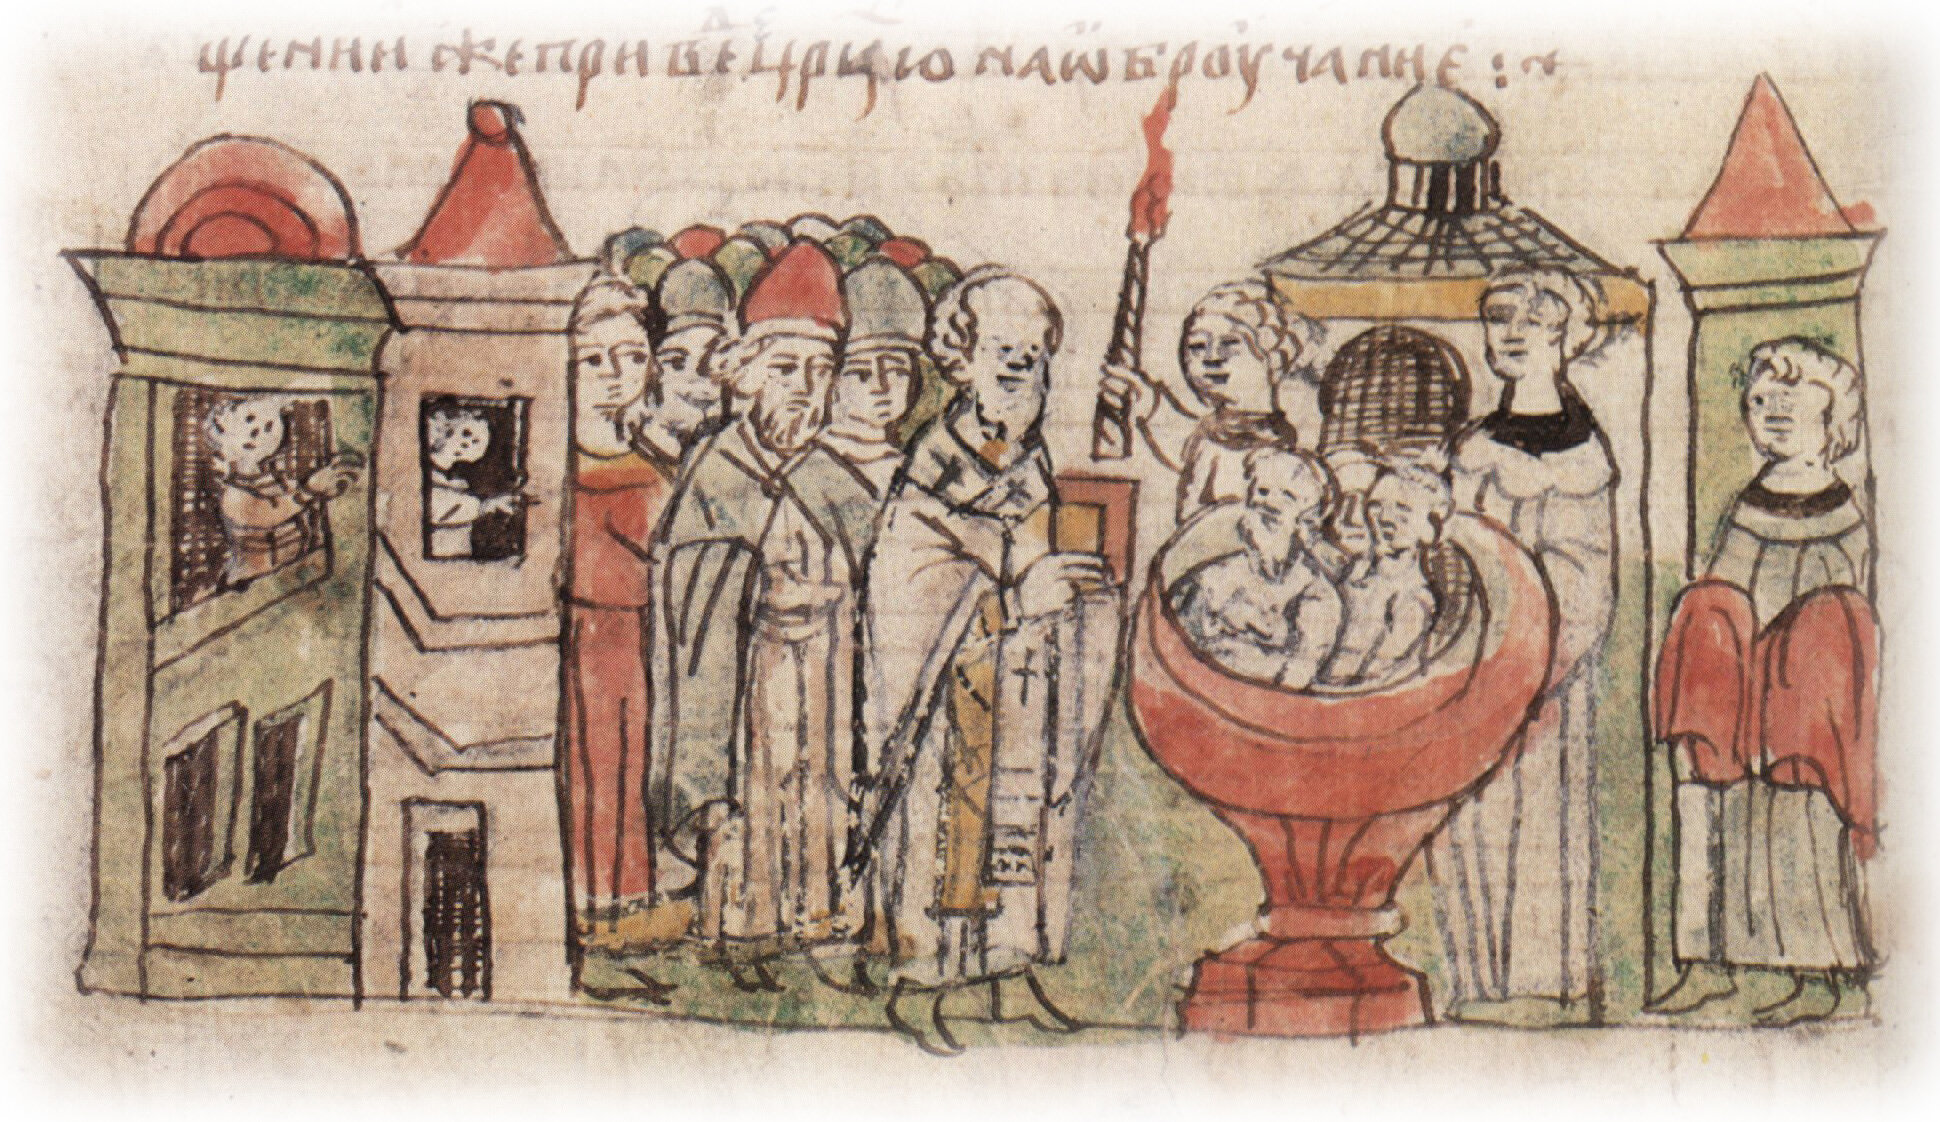 щении же приведе црцю на ѡброучание :~